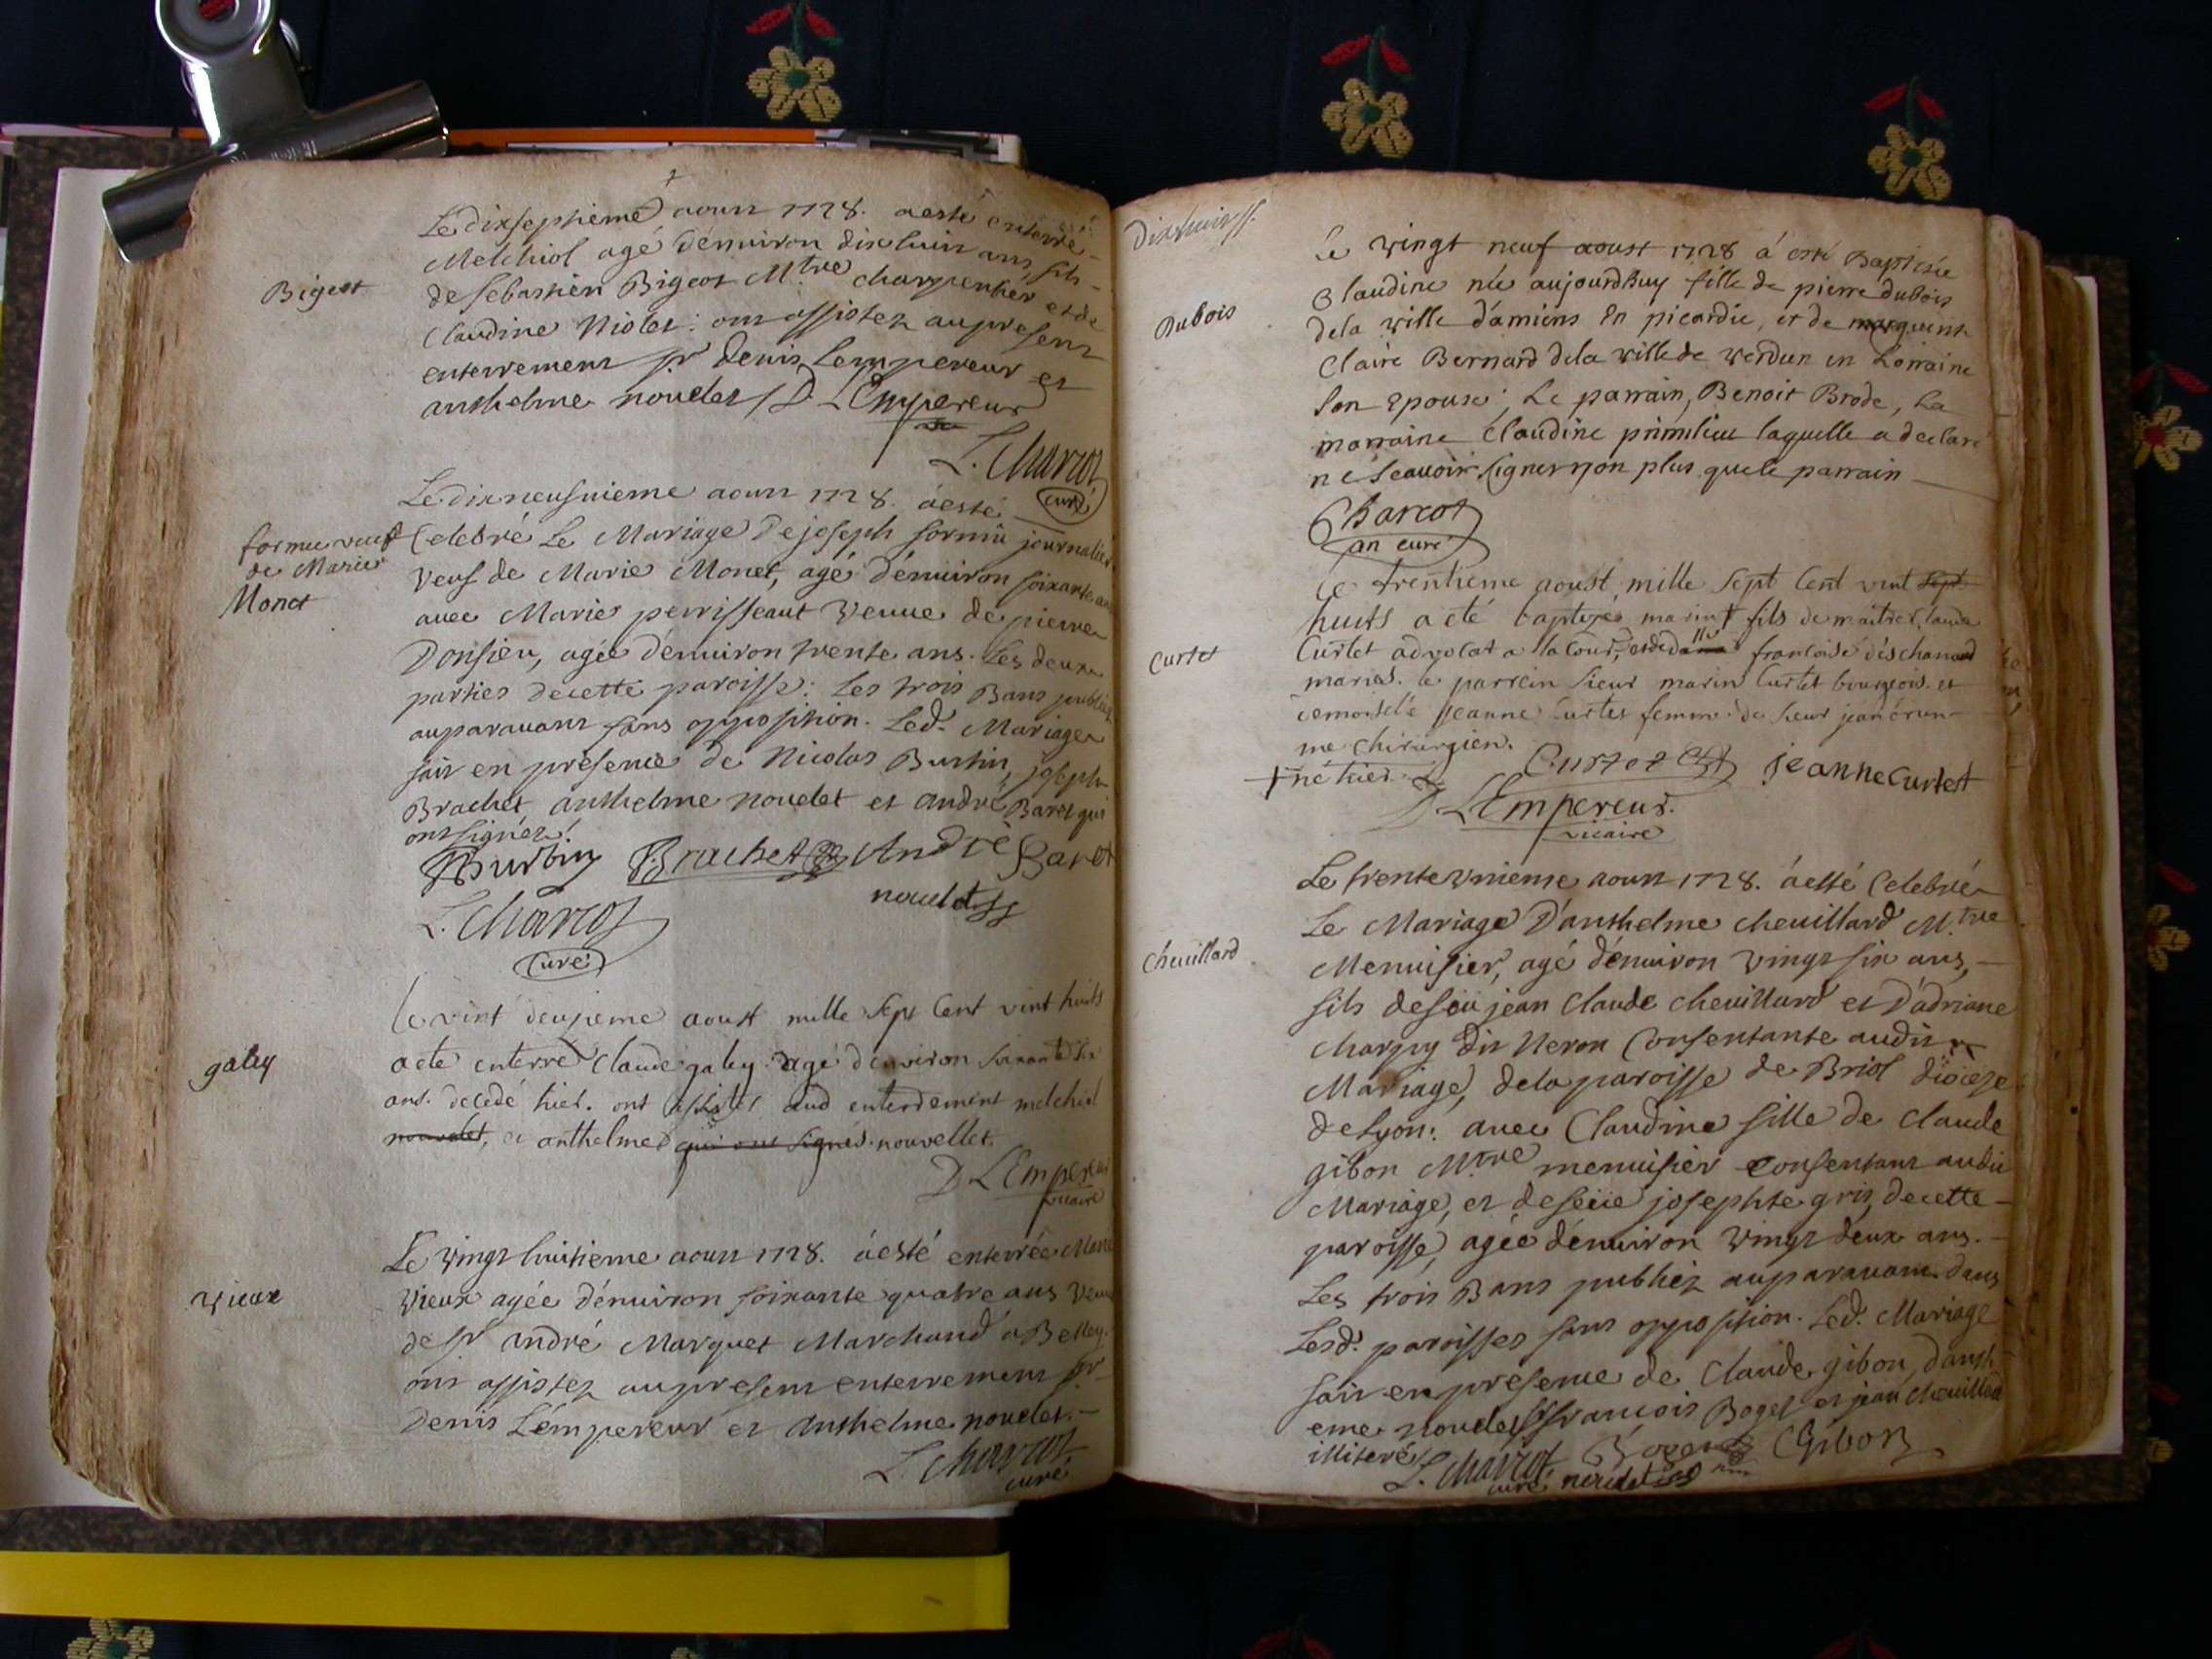 Le dixseptieme aoust 1728. a esté enterré
Melchiol agé d'enuiron dixhuit ans, fils
Bigeot
de sebastien Bigeot M.tre charpentier et de
Claudine Niolet: ont assistez au present
enterrement sr denis Lempereur et
anthelme nouelet / D LEmpereur
L. Charcot
curé
Le dixneufuieme aoust 1728. a esté
formu veuf
de Marie
Monet
Celebré Le Mariage De joseph formu journalier
veuf de Marie Monet, agé d'enuiron soixante ans
auec Marie perrisseaut veuue de pierre
Donsieu, agée d'enuiron trente ans. Les deux
parties de cette paroisse: Les trois Bans publiez
auparauant sans opposition. Led. Mariage
fait en presence de Nicolas Burtin, joseph
Brachet anthelme nouelet et andré Baret qui
ont signéz.
Burtin Brachet André Baret
nouelet
L. Charcot
Curé
Le vint deuxieme aoust mille sept Cent vint huits
galey
a eté enterré Claude galey agé d'environ soixante six
ans. decedé hier. ont assistés aud enterrement melchiol
nouvelet, et anthelme qui ont signés nouvellet.
D LEmpereur
vicaire
Le vingt huitieme aoust 1728. a esté enterrée Marie
vieux
Vieux agée d'enuiron soixante quatre ans veuue
de sr andré Marquet Marchand a Belley.
ont assistez au present enterrement sr
Denis Lémpereur et Anthelme nouelet.
L. Charcot
curé
Dixhuit
Le vingt neuf aoust 1728 á esté Baptisée
Claudine née aujourdhuy fille de pierre dubois
Dubois
dela ville d'amiens En picardie, et de marguerite
Claire Bernard dela ville de verdun en Lorraine
son epouse; Le parrain, Benoit Brode, La
marraine Claudine laquelle a declaré
ne sçauoir signer non plus que le parrain
Charcot
an curé
Le trentieme aoust mille sept Cent vint sept
huits a eté baptizé marin + fils de maitre Claude
Curtet
Curtet advocat a la Cour, et de dame lle francoise deschanaud
mariés. le parrein sieur marin Curtet bourgeois. et
demoiselle jeanne Curtet femme de sieur jean brun
me chirurgien.
+ né hier
Curtet jeanne Curtet
D LEmpereur.
vicaire
Le trente vnieme aoust 1728. á esté Celebré
Le Mariage D'anthelme cheuillard M.tre
Cheuillard
Menuisier, agé d'enuiron vingt six ans,
fils de feu jean Claude cheuillard et D'adriane
charpy dit Neron Consentante audit
Mariage, dela paroisse de Briol dioceze
de Lyon: auec Claudine fille de Claude
gibon M.tre menuisier consentant audit
Mariage, et de feüe josephte gris, de cette
paroisse, agée d'enuiron vingt deux ans.
Les trois Bans publiez auparauant dans
Lesd. paroisses sans opposition. Led. Mariage
fait en presence de Claude gibon, d'anth
eme nouelet, francois Boget et jean cheuillard
illiteré
L. Charcot Boget CGibon
curé nouelet